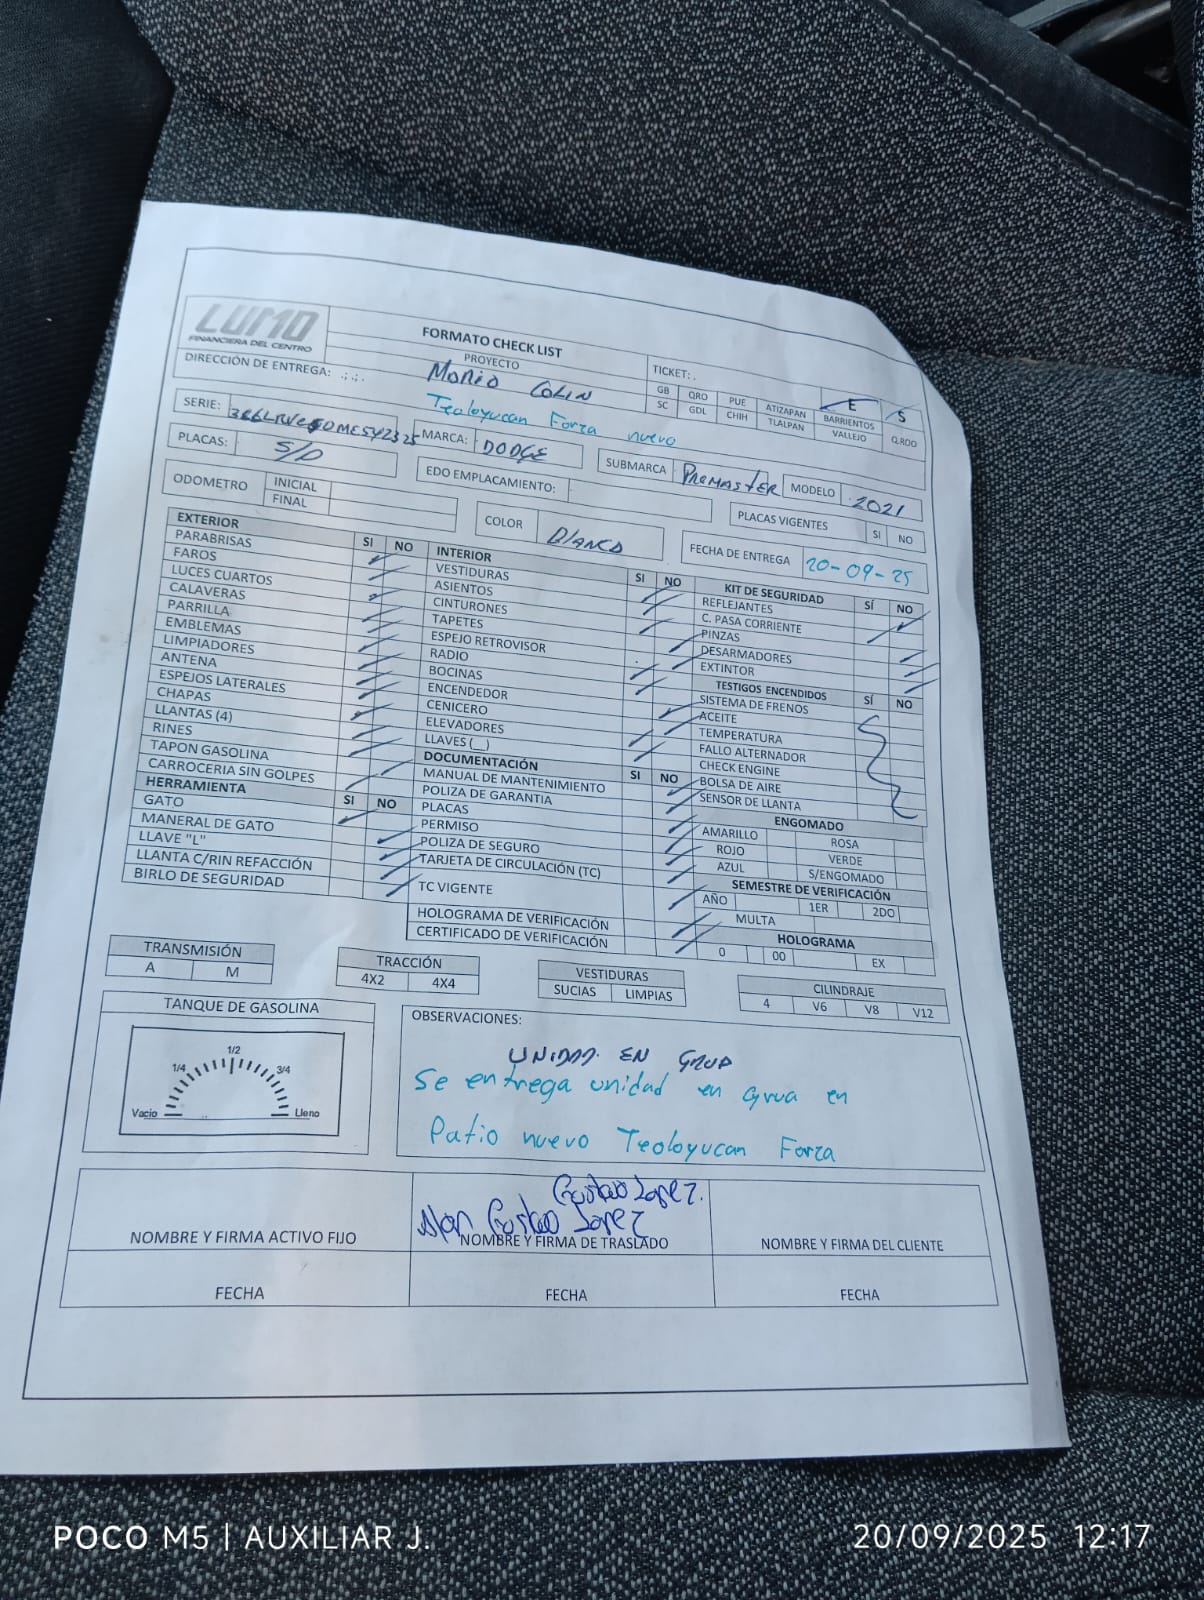 LUMO
FINANCIERA DEL CENTRO
FORMATO CHECK LIST
PROYECTO
TICKET:
DIRECCIÓN DE ENTREGA:
Mario Colin
Teoloyucan Forza nuevo
GB QRO PUE ATIZAPAN E BARRIENTOS S
SC GDL CHIH TLALPAN VALLEJO Q.ROO
SERIE:
PLACAS: S/P
MARCA: DODGE
SUBMARCA PROMASTER
MODELO 2021
ODOMETRO INICIAL
FINAL
EDO EMPLACAMIENTO:
PLACAS VIGENTES SI NO
COLOR BLANCO
FECHA DE ENTREGA 20-09-25
EXTERIOR SI NO
PARABRISAS
FAROS
LUCES CUARTOS
CALAVERAS
PARRILLA
EMBLEMAS
LIMPIADORES
ANTENA
ESPEJOS LATERALES
CHAPAS
LLANTAS (4)
RINES
TAPON GASOLINA
CARROCERIA SIN GOLPES
HERRAMIENTA SI NO
GATO
MANERAL DE GATO
LLAVE "L"
LLANTA C/RIN REFACCIÓN
BIRLO DE SEGURIDAD
INTERIOR SI NO
VESTIDURAS
ASIENTOS
CINTURONES
TAPETES
ESPEJO RETROVISOR
RADIO
BOCINAS
ENCENDEDOR
CENICERO
ELEVADORES
LLAVES (__)
DOCUMENTACIÓN SI NO
MANUAL DE MANTENIMIENTO
POLIZA DE GARANTIA
PLACAS
PERMISO
POLIZA DE SEGURO
TARJETA DE CIRCULACIÓN (TC)
TC VIGENTE
HOLOGRAMA DE VERIFICACIÓN
CERTIFICADO DE VERIFICACIÓN
KIT DE SEGURIDAD SÍ NO
REFLEJANTES
C. PASA CORRIENTE
PINZAS
DESARMADORES
EXTINTOR
TESTIGOS ENCENDIDOS SÍ NO
SISTEMA DE FRENOS
ACEITE
TEMPERATURA
FALLO ALTERNADOR
CHECK ENGINE
BOLSA DE AIRE
SENSOR DE LLANTA
ENGOMADO
AMARILLO ROSA
ROJO VERDE
AZUL S/ENGOMADO
SEMESTRE DE VERIFICACIÓN
AÑO 1ER 2DO
MULTA
HOLOGRAMA
0 00 EX
TRANSMISIÓN
A M
TRACCIÓN
4X2 4X4
VESTIDURAS
SUCIAS LIMPIAS
CILINDRAJE
4 V6 V8 V12
TANQUE DE GASOLINA
1/4 1/2 3/4
Vacio Lleno
OBSERVACIONES:
UNIDAD EN GRUA
Se entrega unidad en grua en
Patio nuevo Teoloyucan Forza
Gustavo Lopez.
Gustavo Lopez
NOMBRE Y FIRMA ACTIVO FIJO
NOMBRE Y FIRMA DE TRASLADO
NOMBRE Y FIRMA DEL CLIENTE
FECHA FECHA FECHA
POCO M5 | AUXILIAR J.
20/09/2025 12:17